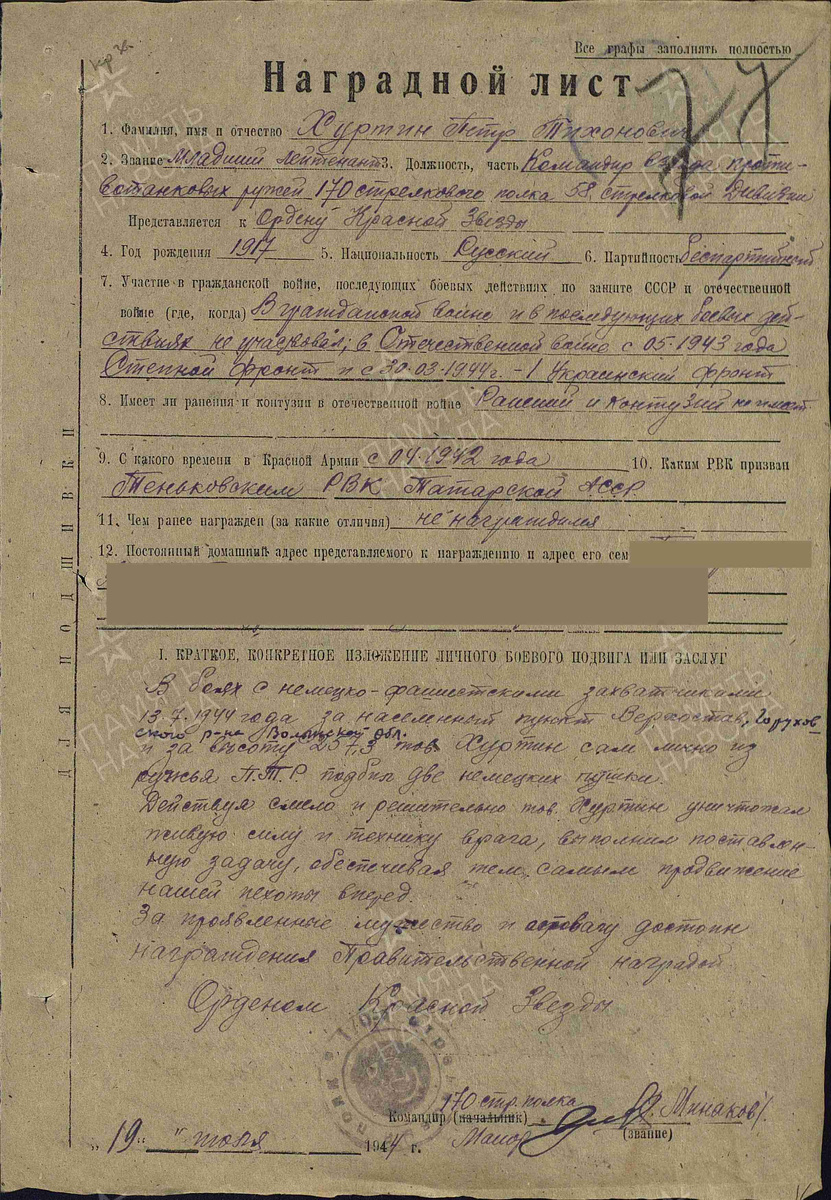 Все графы заполнять полностью
Кр Зв
77
Наградной лист
1. Фамилия, имя и отчество Хуртин Петр Тихонович
2. Звание Младший Лейтенант 3. Должность, часть Командир взвода проти-
вотанковых ружей 170 стрелкового полка 58 стрелковой Дивизии
Представляется к Ордену Красной Звезды
4. Год рождения 1917 5. Национальность Русский 6. Партийность беспартийный
7. Участие в гражданской войне, последующих боевых действиях по защите СССР и отечественной
войне (где, когда) В гражданской войне и в последующих боевых дей-
ствиях не участвовал; в Отечественной войне с 05.1943 года
Степной Фронт и с 30.03.1944 г. - 1 Украинский фронт
8. Имеет ли ранения и контузии в отечественной войне Ранений и контузий не имеет
9. С какого времени в Красной Армии с 04.1942 года 10. Каким РВК призван
Теньковским РВК Татарской АССР
11. Чем ранее награжден (за какие отличия) не награждался
12. Постоянный домашний адрес представляемого к награждению и адрес его сем
ДЛЯ ПОДШИВКИ
I. КРАТКОЕ, КОНКРЕТНОЕ ИЗЛОЖЕНИЕ ЛИЧНОГО БОЕВОГО ПОДВИГА ИЛИ ЗАСЛУГ
В боях с немецко-фашистскими захватчиками
13.7.1944 года за населенный пункт Верхостав, Горухов
ского р-на Волынской обл.
и за высоту 257,3 тов. Хуртин сам лично из
ружья П.Т.Р. подбил две немецких пушки.
Действуя смело и решительно тов. Хуртин уничтожал
живую силу и технику врага, выполнил поставлен-
ную задачу, обеспечивая тем самым продвижение
нашей пехоты вперед.
За проявленные мужество и отвагу достоин
награждения Правительственной наградой
Орденом Красной Звезды
170 стр. полка
Командир (начальник)
Майор /Минаков/
(звание)
„19" июля 1944 г.
ПАМЯТЬ НАРОДА